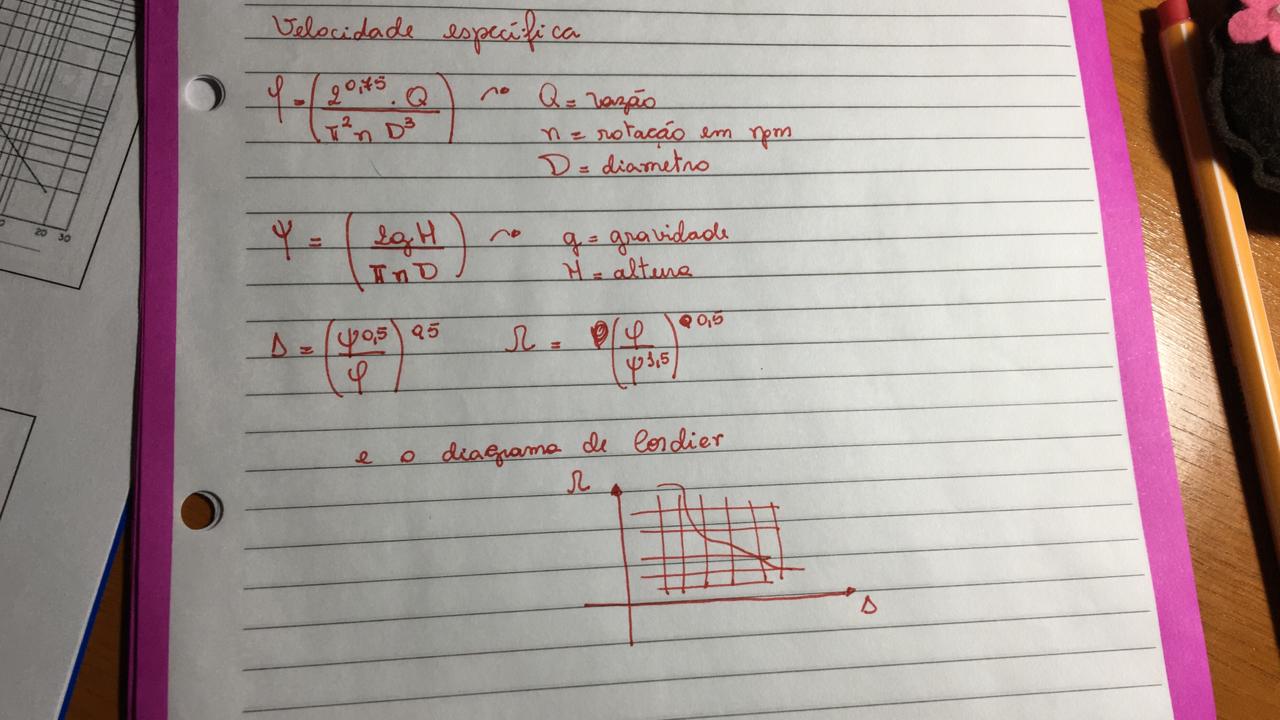 Velocidade específica
φ = (2^0,75 . Q / π² n D³) ~ Q = vazão
n = rotação em rpm
D = diametro
ψ = (2gH / π n D) ~ g = gravidade
H = altura
Δ = (ψ^0,5 / φ)^0,5 Ω = (φ / ψ^1,5)^0,5
e o diagrama de Cordier
Ω
Δ
20 30